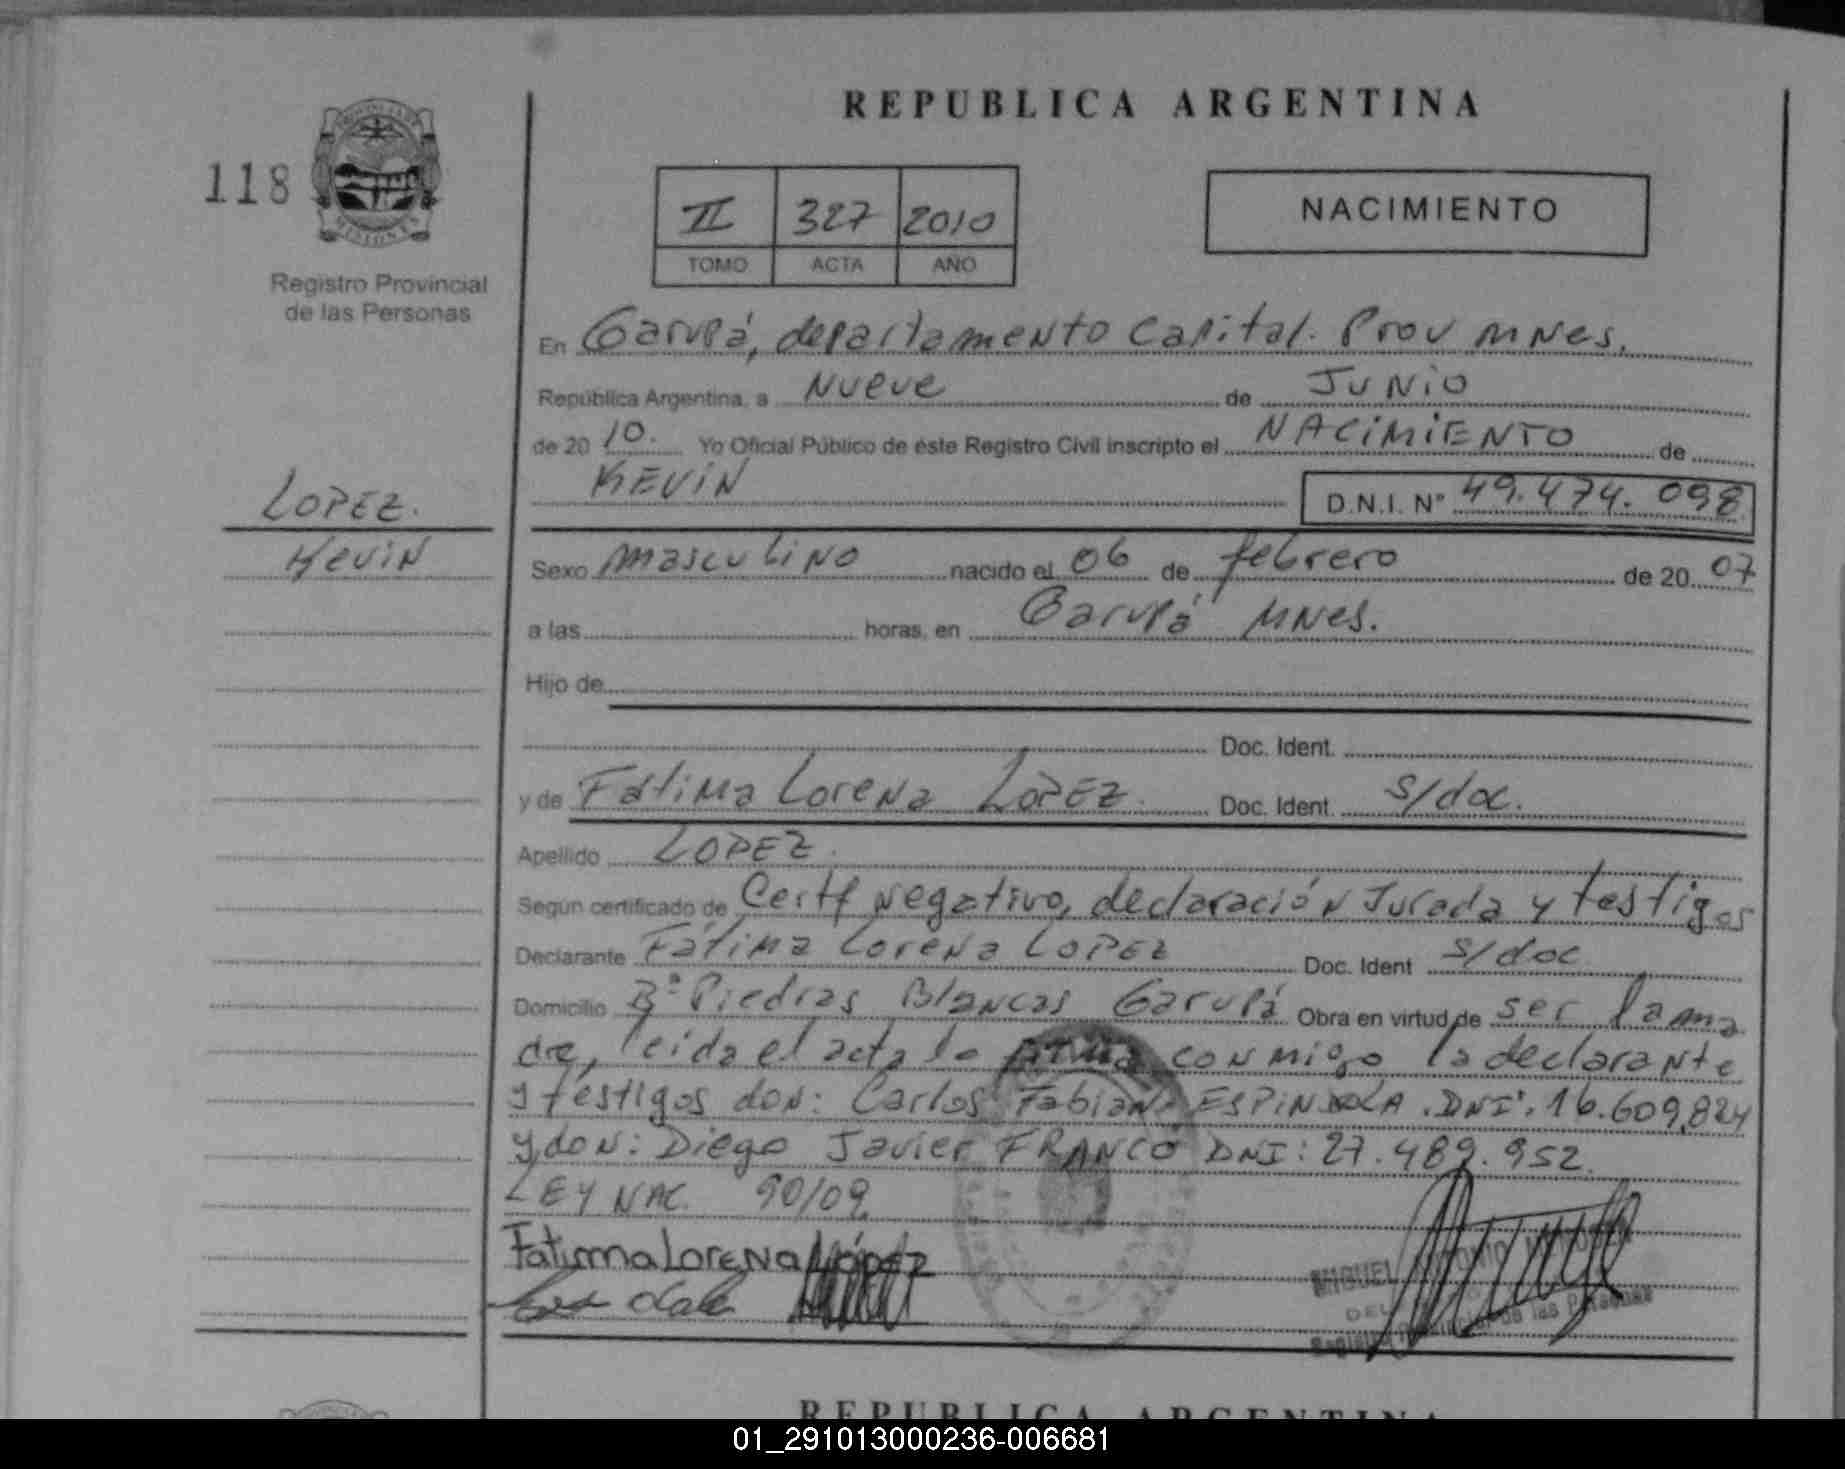 REPUBLICA ARGENTINA
118
PROVINCIA DE
MISIONES
Registro Provincial
de las Personas
II 327 2010
TOMO ACTA AÑO
NACIMIENTO
En Garupá, departamento Capital. Prov MNes.
República Argentina, a Nueve de JUNIO
de 20 10. Yo Oficial Público de éste Registro Civil inscripto el NACIMIENTO de
KEVIN D.N.I. Nº 49.474.098
LOPEZ.
Kevin
Sexo masculino nacido el 06 de febrero de 20 07
a las horas, en Garupá MNes.
Hijo de
Doc. Ident.
y de Fátima Lorena LOPEZ. Doc. Ident. s/doc.
Apellido LOPEZ.
Según certificado de Certf negativo, declaración Jurada y testigos
Declarante Fátima Lorena LOPEZ Doc. Ident s/doc
Domicilio Bº Piedras Blancas Garupá Obra en virtud de ser la ma
dre, leida el acta la firma conmigo la declarante
y testigos don: Carlos Fabian ESPINDOLA. DNI: 16.609.824
y don: Diego Javier FRANCO DNI: 27.489.952.
LEY NAC. 90/09.
Fatima Lorena López
MIGUEL ANTONIO
DEL
Registro Provincial de las Personas
REPUBLICA ARGENTINA
01_291013000236-006681